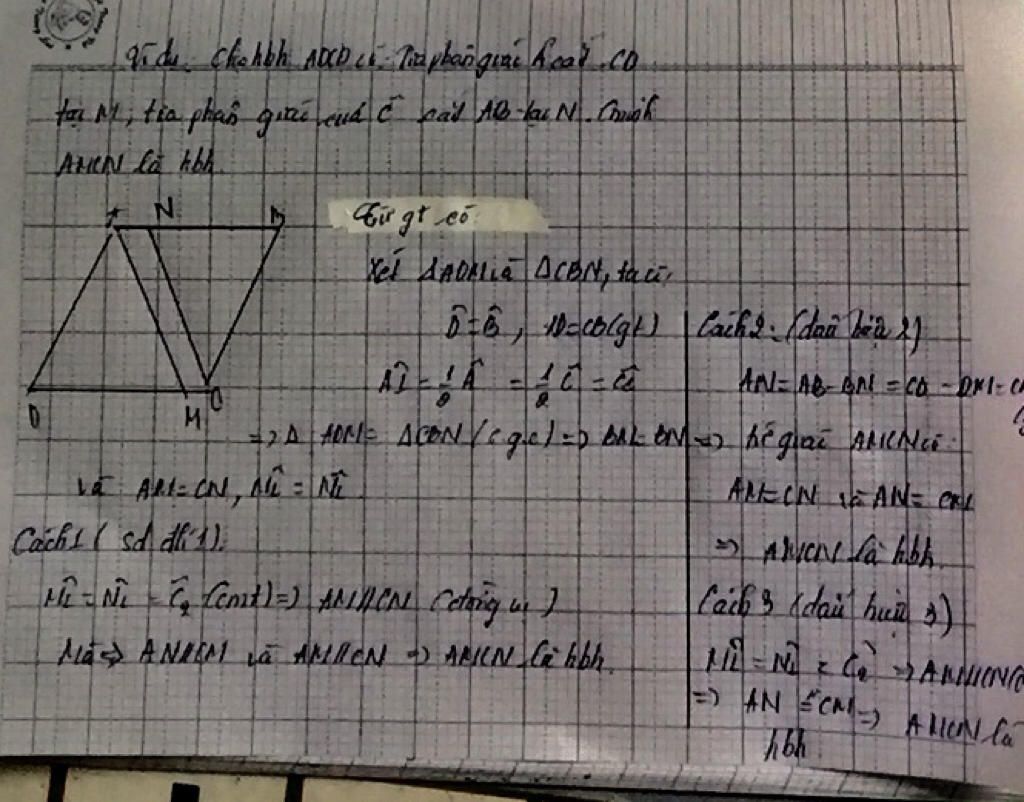 Ví dụ: Cho hbh ABCD có: Tia phân giác Â cắt CD
tại M, tia phân giác của Ĉ cắt AB tại N. Chứng minh
AMCN là hbh.
A N B
D M C
Từ gt có:
Xét ΔADM và ΔCBN, ta có:
D̂ = B̂, AD = CB (gt)
Â1 = 1/2 Â = 1/2 Ĉ = Ĉ1
=> Δ ADM = ΔCBN (c.g.c) => DM = BN
và AM = CN, M̂1 = N̂1
Cách 1 ( sd đh 1).
M̂1 = N̂1 = Ĉ2 (cmt) => AM//CN (đồng vị)
Mà => AN//CM và AM//CN => AMCN là hbh.
Cách 2: (dấu hiệu 2)
AN = AB - BN = CD - DM = C
=> tứ giác AMCN có:
AM = CN và AN = CM
=> AMCN là hbh.
Cách 3 (dấu hiệu 3)
M̂1 = N̂1 = Ĉ2 => AM//CN
=> AN = CM => AMCN là
hbh